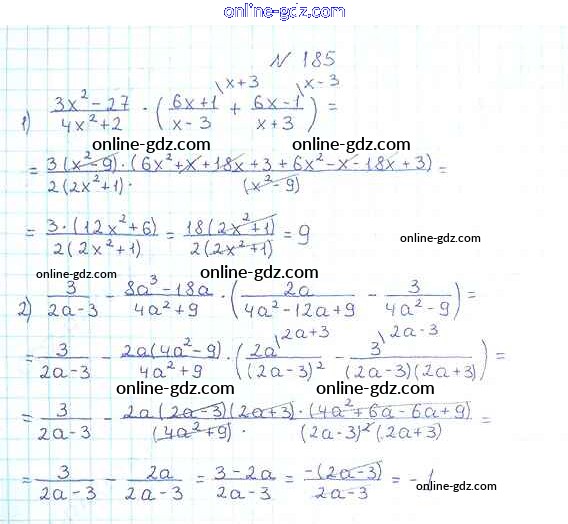 online-gdz.com
N 185
1) (3x² - 27)/(4x² + 2) · ((6x+1)/(x-3) \x+3 + (6x-1)/(x+3) \x-3) =
online-gdz.com online-gdz.com
= (3(x²-9) · (6x²+x+18x+3+6x²-x-18x+3))/(2(2x²+1) · (x²-9)) =
online-gdz.com
= (3·(12x²+6))/(2(2x²+1)) = (18(2x²+1))/(2(2x²+1)) = 9
online-gdz.com
online-gdz.com online-gdz.com
2) 3/(2a-3) - (8a³-18a)/(4a²+9) · (2a/(4a²-12a+9) - 3/(4a²-9)) =
online-gdz.com
= 3/(2a-3) - (2a(4a²-9))/(4a²+9) · (2a/(2a-3)² \2a+3 - 3/((2a-3)(2a+3)) \2a-3) =
online-gdz.com online-gdz.com
= 3/(2a-3) - (2a(2a-3)(2a+3) · (4a²+6a-6a+9))/((4a²+9) · (2a-3)²(2a+3)) =
online-gdz.com
= 3/(2a-3) - 2a/(2a-3) = (3-2a)/(2a-3) = (-(2a-3))/(2a-3) = -1
online-gdz.com
online-gdz.com